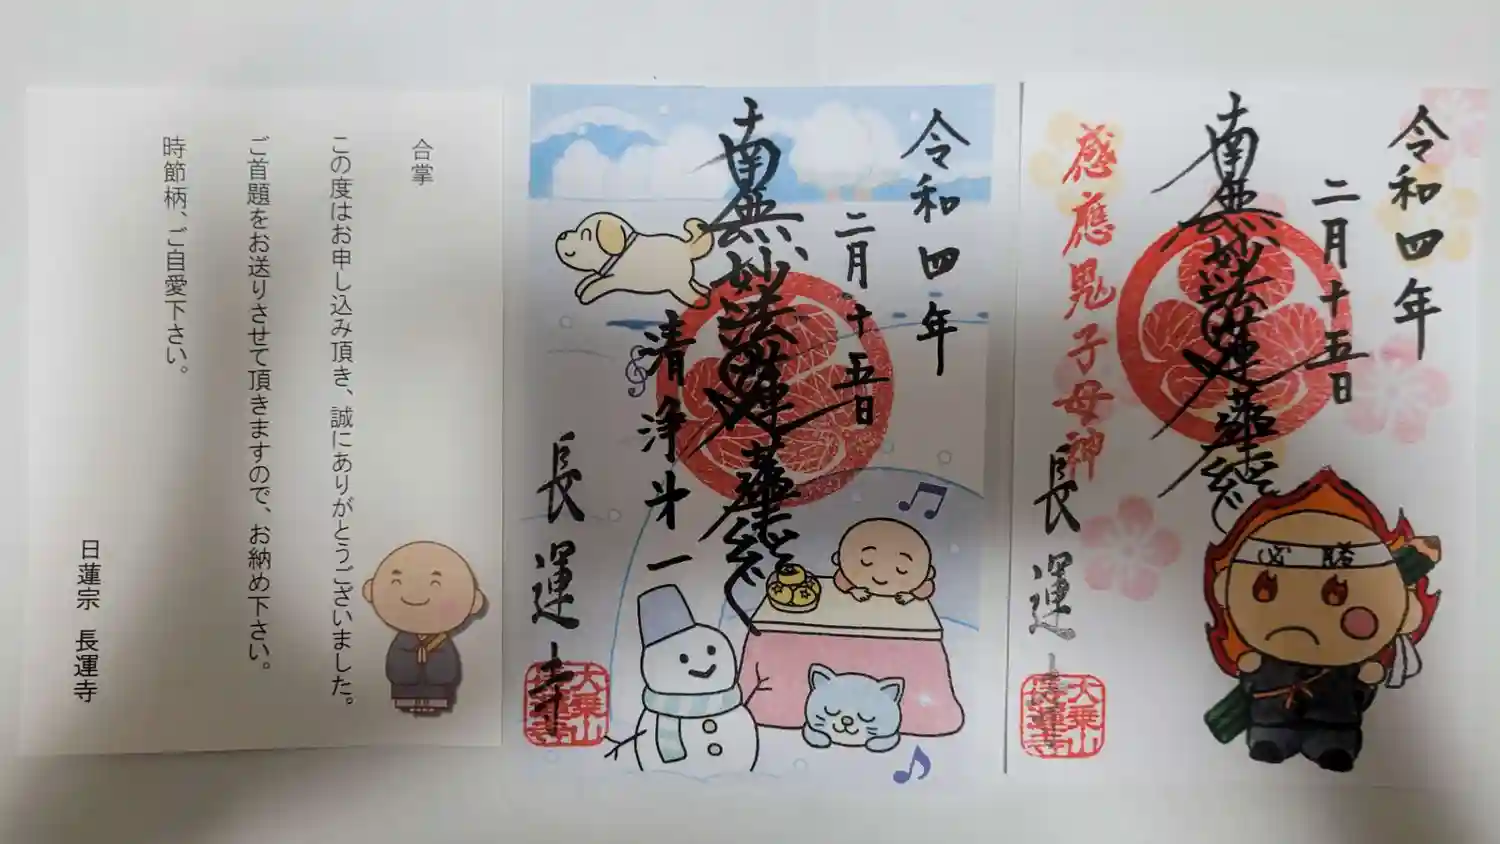 合掌
この度はお申し込み頂き、誠にありがとうございました。
ご首題をお送りさせて頂きますので、お納め下さい。
時節柄、ご自愛下さい。
日蓮宗 長運寺
令和四年
二月十五日
南無妙法蓮華経
清浄斗一
長運寺
大乗山
長運寺
令和四年
二月十五日
南無妙法蓮華経
感應鬼子母神
長運寺
大乗山
長運寺
必勝